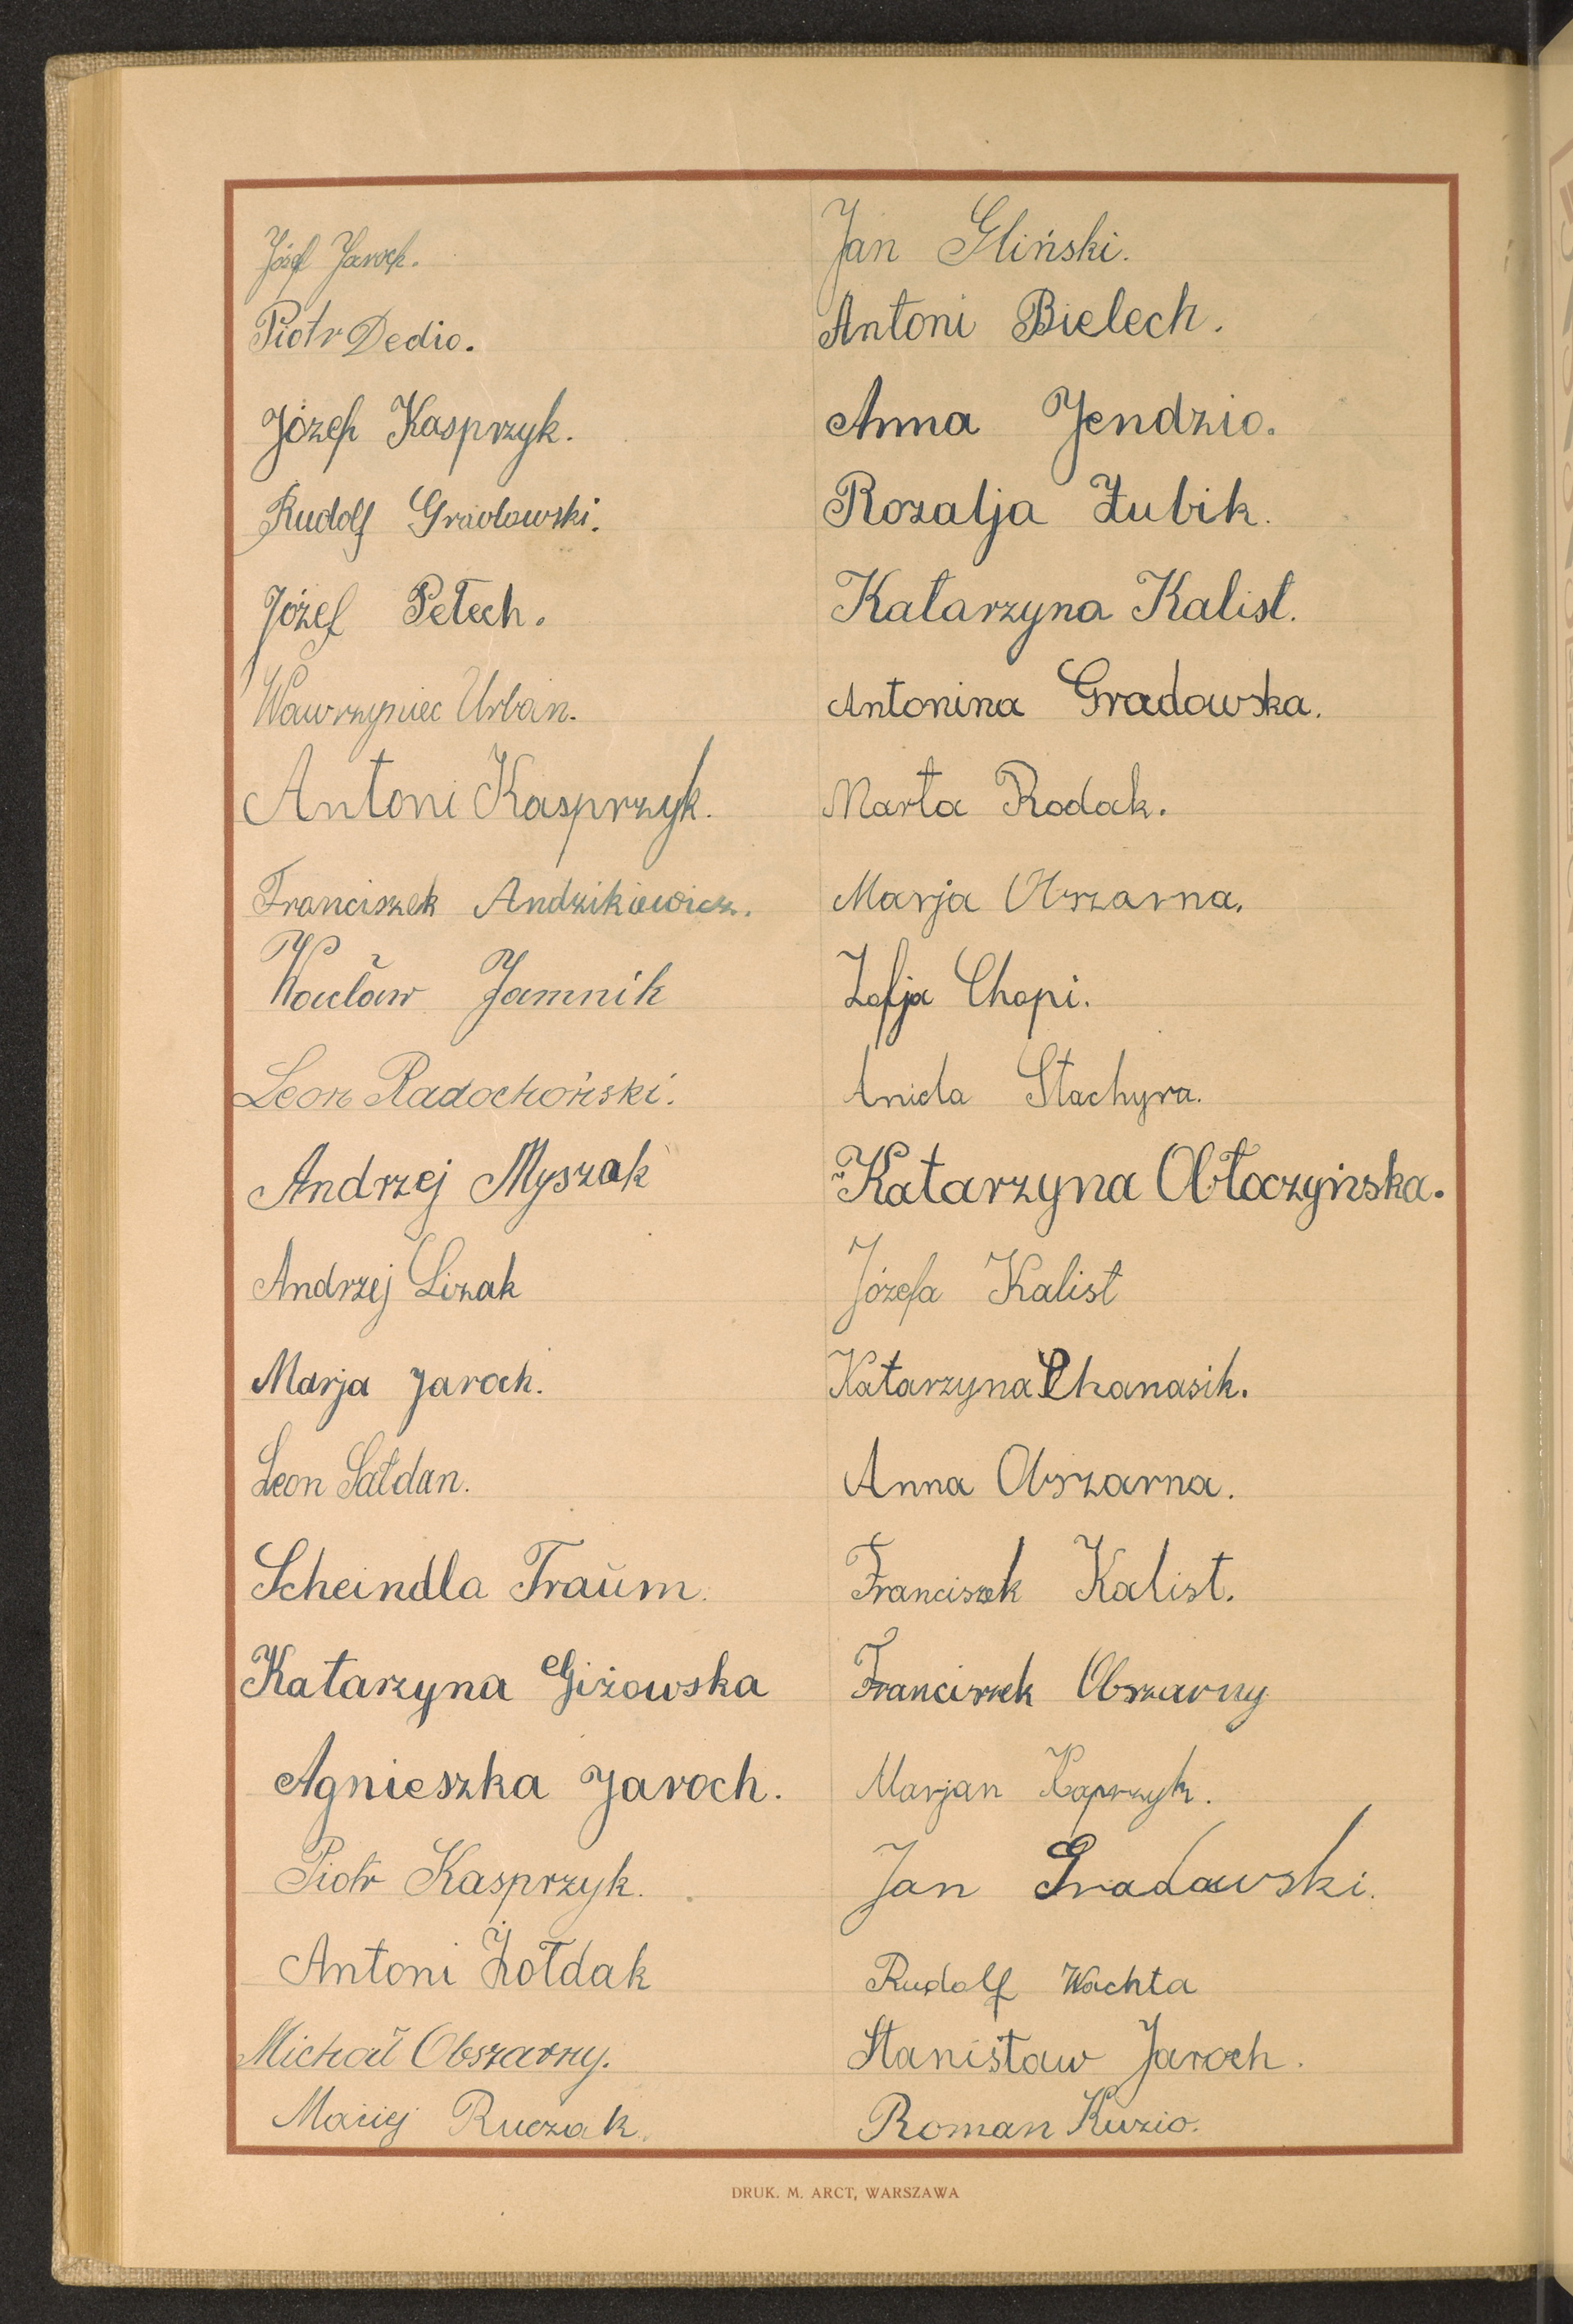 Józef Jaroch.
Piotr Dedio.
Józef Kasprzyk.
Rudolf Gradowski.
Józef Petech.
Wawrzyniec Urban.
Antoni Kasprzyk.
Franciszek Andzikiewicz.
Wacław Jamnik
Leon Radochoński.
Andrzej Myszak
Andrzej Lizak
Marja Jaroch.
Leon Sałdan.
Scheindla Traŭm.
Katarzyna Giżowska
Agnieszka Jaroch.
Piotr Kasprzyk.
Antoni Żołdak
Michał Obszarny.
Maciej Ruczak.
Jan Gliński.
Antoni Bielech.
Anna Jendzio.
Rozalja Łubik.
Katarzyna Kalist.
Antonina Gradowska.
Marta Rodak.
Marja Obszarna.
Zofja Chopi.
Aniela Stachyra.
Katarzyna Obłoczyńska.
Józefa Kalist
Katarzyna Chanasik.
Anna Obszarna.
Franciszek Kalist.
Franciszek Obszarny
Marjan Kaprzyk.
Jan Gradowski.
Rudolf Wachta
Stanisław Jaroch.
Roman Kuzio.
DRUK. M. ARCT, WARSZAWA